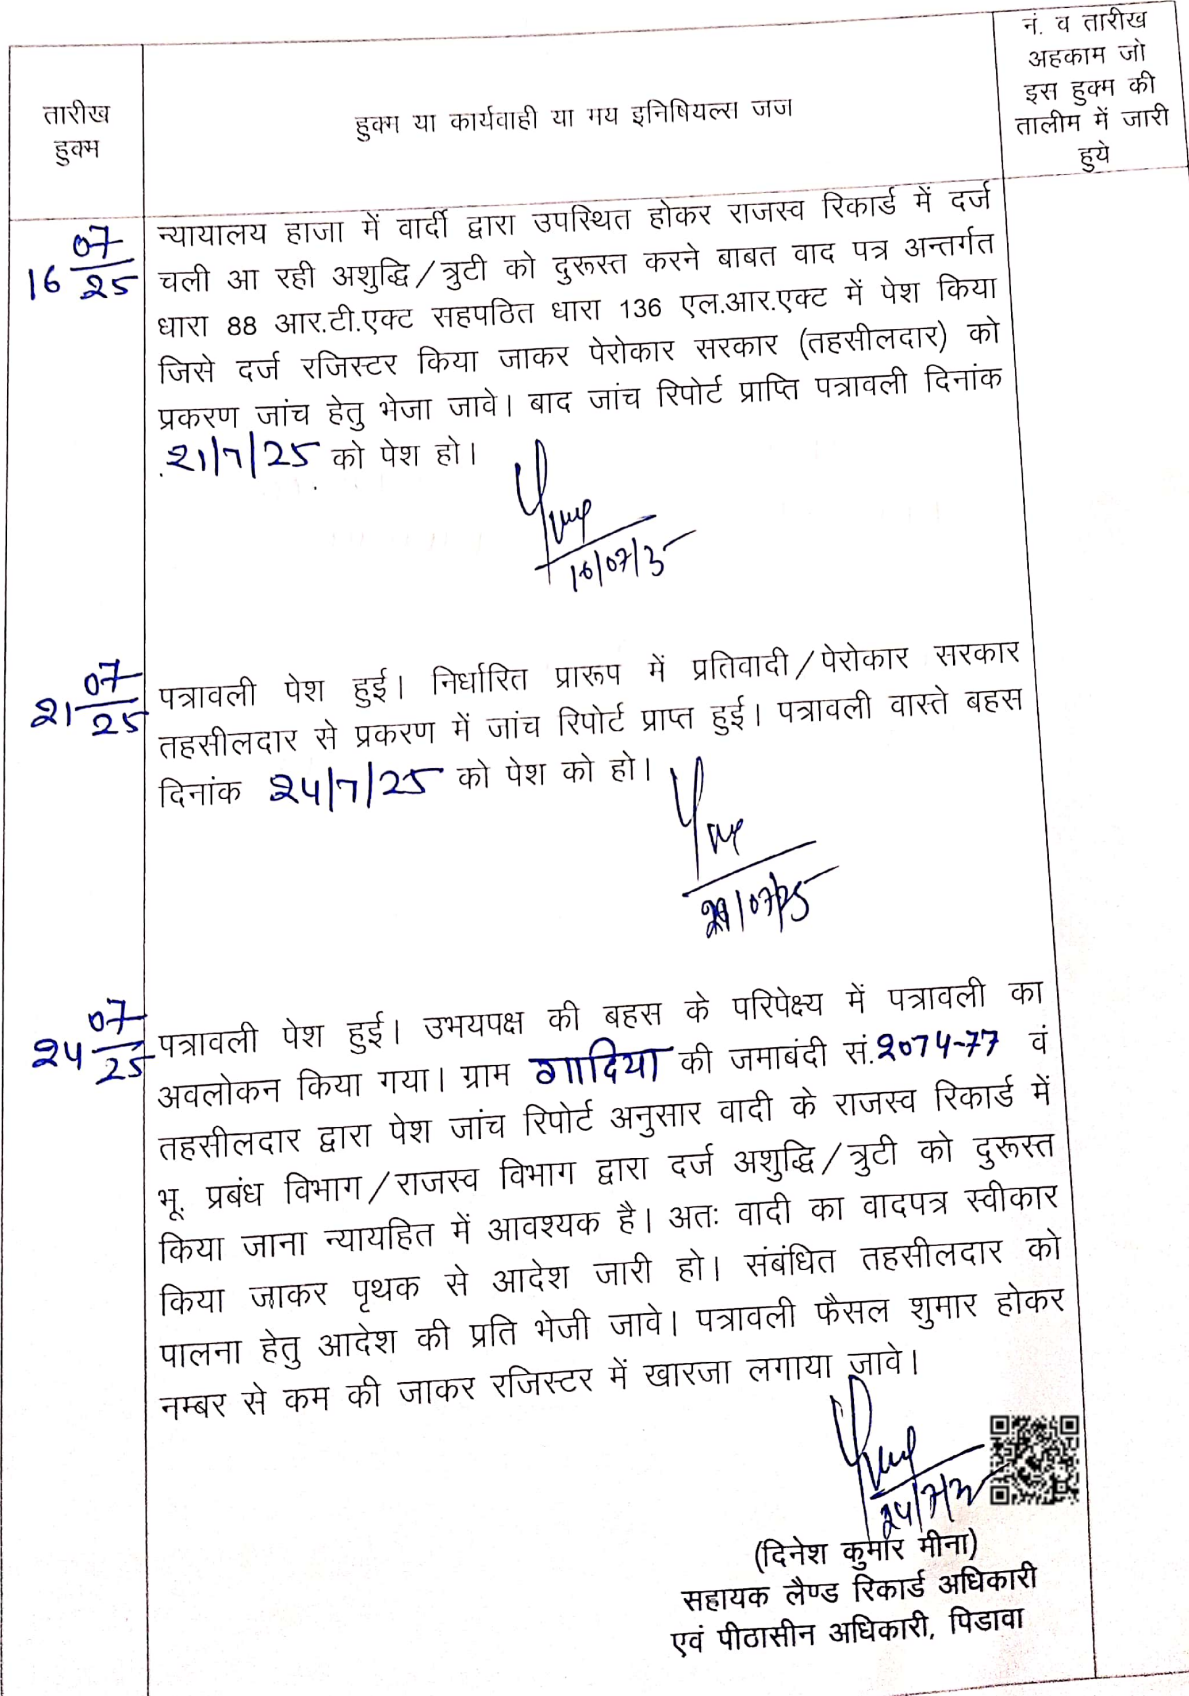 तारीख
हुक्म
हुक्म या कार्यवाही या मय इनिषियल्स जज
नं. व तारीख
अहकाम जो
इस हुक्म की
तालीम में जारी
हुये
16 07/25
न्यायालय हाजा में वार्दी द्वारा उपस्थित होकर राजस्व रिकार्ड में दर्ज
चली आ रही अशुद्धि/त्रुटी को दुरूस्त करने बाबत वाद पत्र अन्तर्गत
धारा 88 आर.टी.एक्ट सहपठित धारा 136 एल.आर.एक्ट में पेश किया
जिसे दर्ज रजिस्टर किया जाकर पेरोकार सरकार (तहसीलदार) को
प्रकरण जांच हेतु भेजा जावे। बाद जांच रिपोर्ट प्राप्ति पत्रावली दिनांक
21/7/25 को पेश हो।
16/07/25
21 07/25
पत्रावली पेश हुई। निर्धारित प्रारूप में प्रतिवादी/पेरोकार सरकार
तहसीलदार से प्रकरण में जांच रिपोर्ट प्राप्त हुई। पत्रावली वास्ते बहस
दिनांक 24/7/25 को पेश को हो।
21/07/25
24 07/25
पत्रावली पेश हुई। उभयपक्ष की बहस के परिपेक्ष्य में पत्रावली का
अवलोकन किया गया। ग्राम गादिया की जमाबंदी सं.2074-77 वं
तहसीलदार द्वारा पेश जांच रिपोर्ट अनुसार वादी के राजस्व रिकार्ड में
भू. प्रबंध विभाग/राजस्व विभाग द्वारा दर्ज अशुद्धि/त्रुटी को दुरूस्त
किया जाना न्यायहित में आवश्यक है। अतः वादी का वादपत्र स्वीकार
किया जाकर पृथक से आदेश जारी हो। संबंधित तहसीलदार को
पालना हेतु आदेश की प्रति भेजी जावे। पत्रावली फैसल शुमार होकर
नम्बर से कम की जाकर रजिस्टर में खारजा लगाया जावे।
24/7/25
(दिनेश कुमार मीना)
सहायक लैण्ड रिकार्ड अधिकारी
एवं पीठासीन अधिकारी, पिडावा